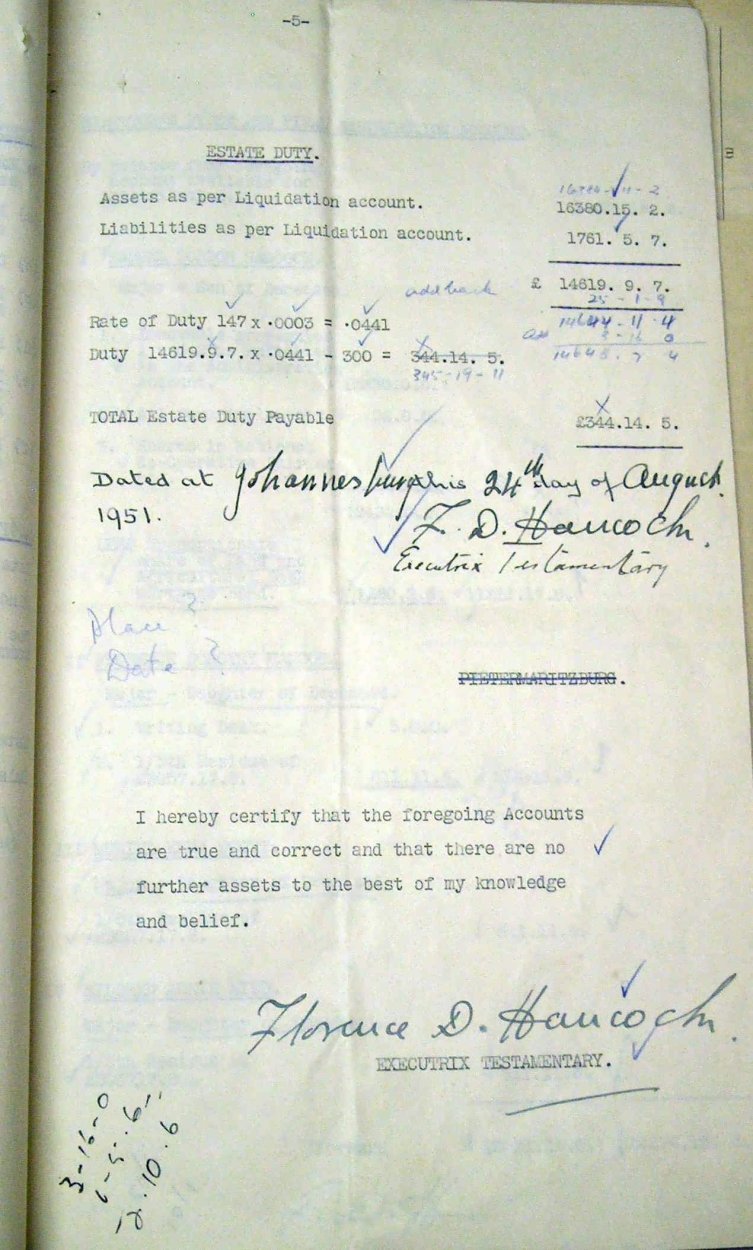 -5-
ESTATE DUTY.
16384-11-2
Assets as per Liquidation account. 16380.15. 2.
Liabilities as per Liquidation account. 1761. 5. 7.
£ 14619. 9. 7.
add back 25-1-9
Rate of Duty 147 x .0003 = .0441 14644-11-4
3-16 0
Duty 14619.9.7. x .0441 - 300 = 344.14. 5. 14648. 7 4
345-19-11
TOTAL Estate Duty Payable £344.14. 5.
Dated at Johannesburg this 24th day of August
1951.
F. D. Hancock.
Executrix Testamentary
Place ?
Date ?
PIETERMARITZBURG.
I hereby certify that the foregoing Accounts
are true and correct and that there are no
further assets to the best of my knowledge
and belief.
Florence D. Hancock.
EXECUTRIX TESTAMENTARY.
3-16-0